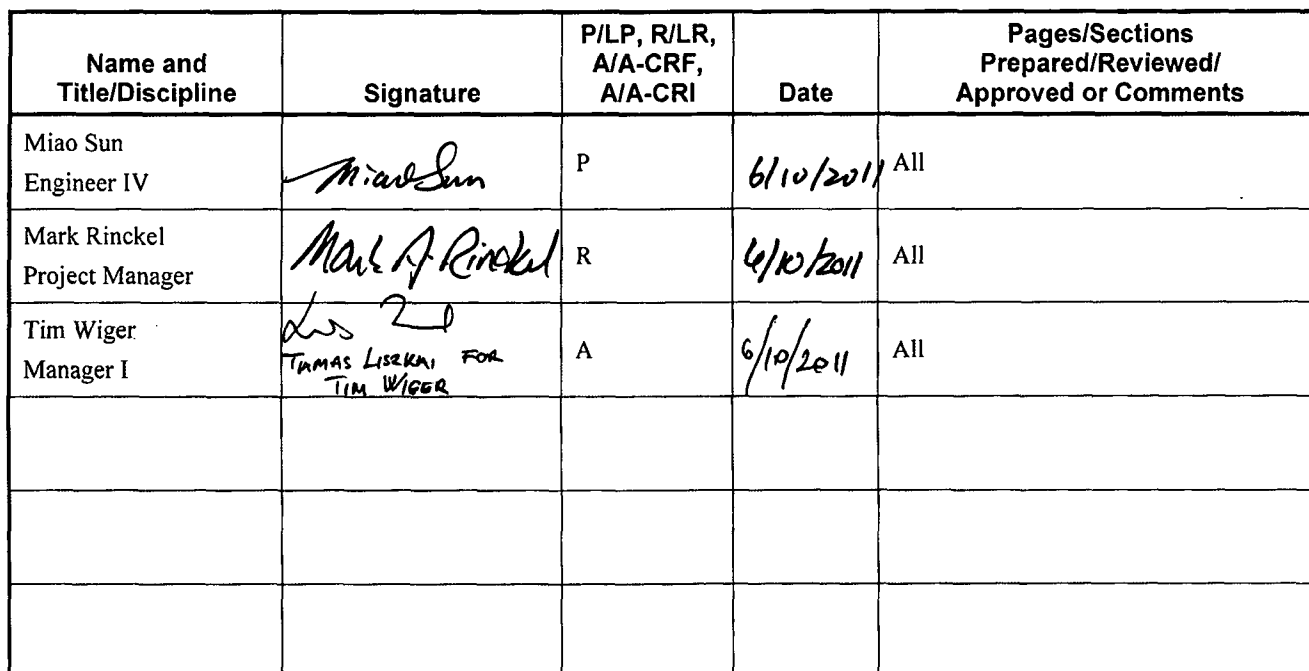 Name and
Title/Discipline
Signature
P/LP, R/LR,
A/A-CRF,
A/A-CRI
Date
Pages/Sections
Prepared/Reviewed/
Approved or Comments
Miao Sun
Engineer IV
Miao Sun
P
6/10/2011
All
Mark Rinckel
Project Manager
Mark A. Rinckel
R
6/10/2011
All
Tim Wiger
Manager I
TAMAS LISZKAI FOR
TIM WIGER
A
6/10/2011
All